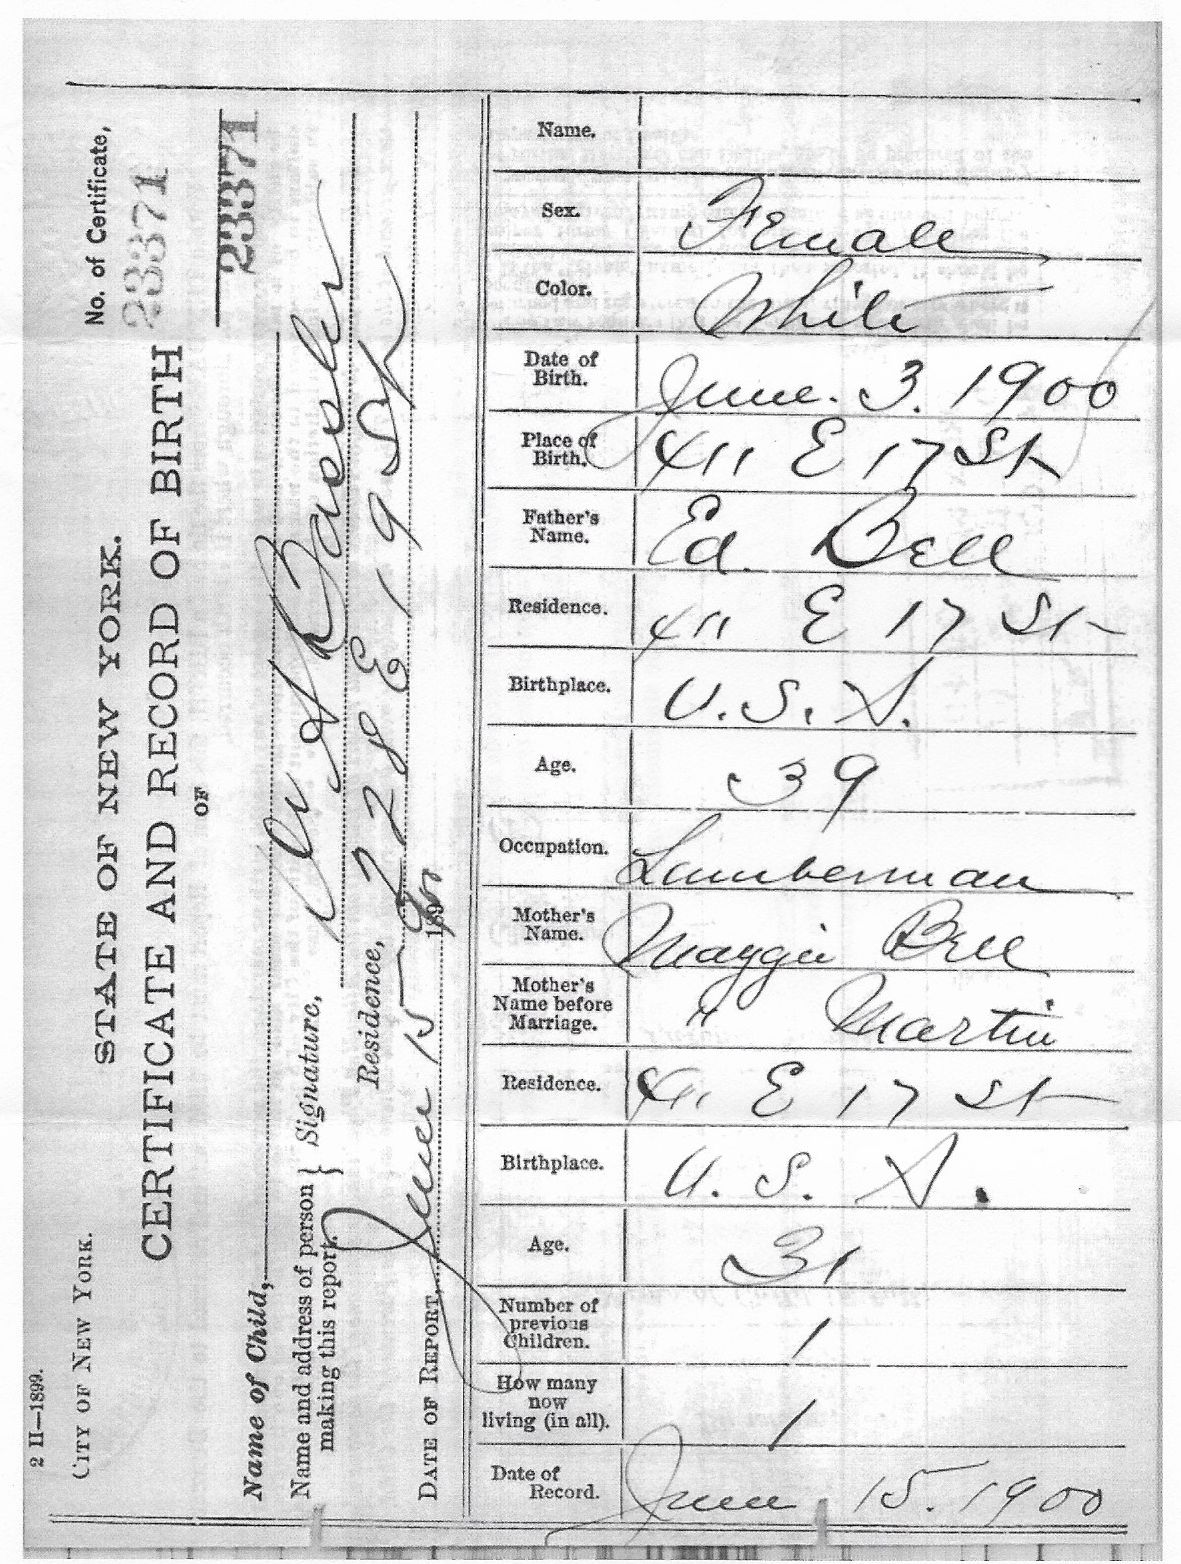 2 II—1899.
CITY OF NEW YORK.
STATE OF NEW YORK.
No. of Certificate,
23371
CERTIFICATE AND RECORD OF BIRTH
OF
23371
Name of Child,
Name and address of person making this report. } Signature,
Residence, 228 E 19 St
DATE OF REPORT, June 15 1900
Name.
Sex. Female
Color. White
Date of Birth. June. 3. 1900
Place of Birth. 411 E 17 St
Father's Name. Ed. Bell
Residence. 411 E 17 St
Birthplace. U. S. A.
Age. 39
Occupation. Lumberman
Mother's Name. Maggie Bell
Mother's Name before Marriage. " Martin
Residence. 411 E 17 St
Birthplace. U. S. A.
Age. 31
Number of previous Children. 1
How many now living (in all). 1
Date of Record. June 15. 1900